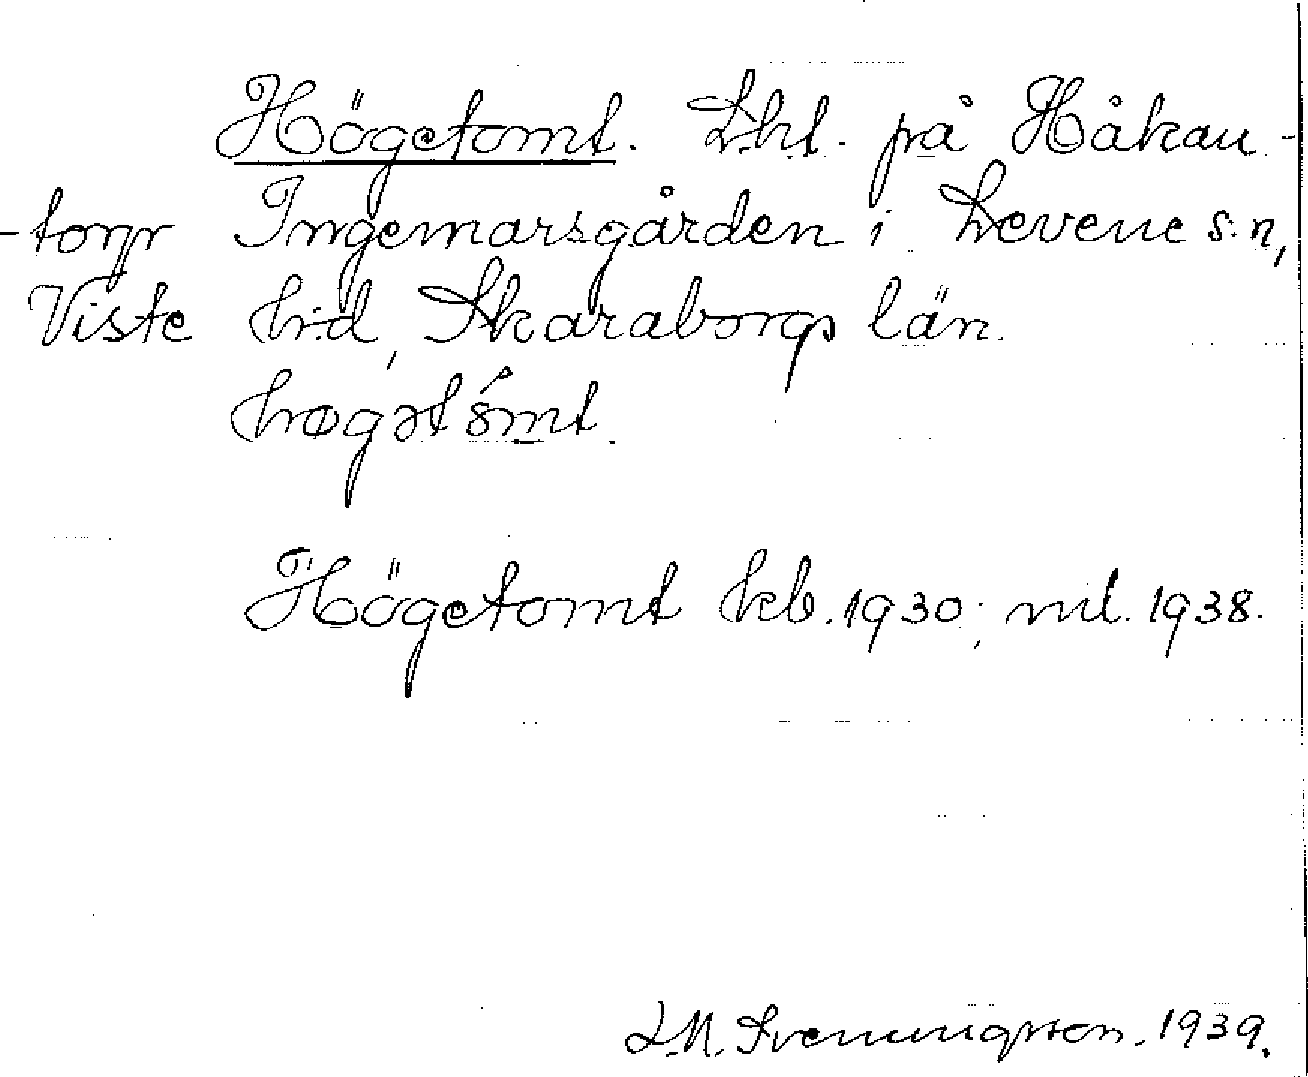 Högetomt. Lht. på Håkan-
-torp Ingemarsgården i Levene s:n,
Viste h:d, Skaraborgs län.
høgətómt.
Högetomt kb. 1930; ml. 1938.
L.M. Svenungsson. 1939.